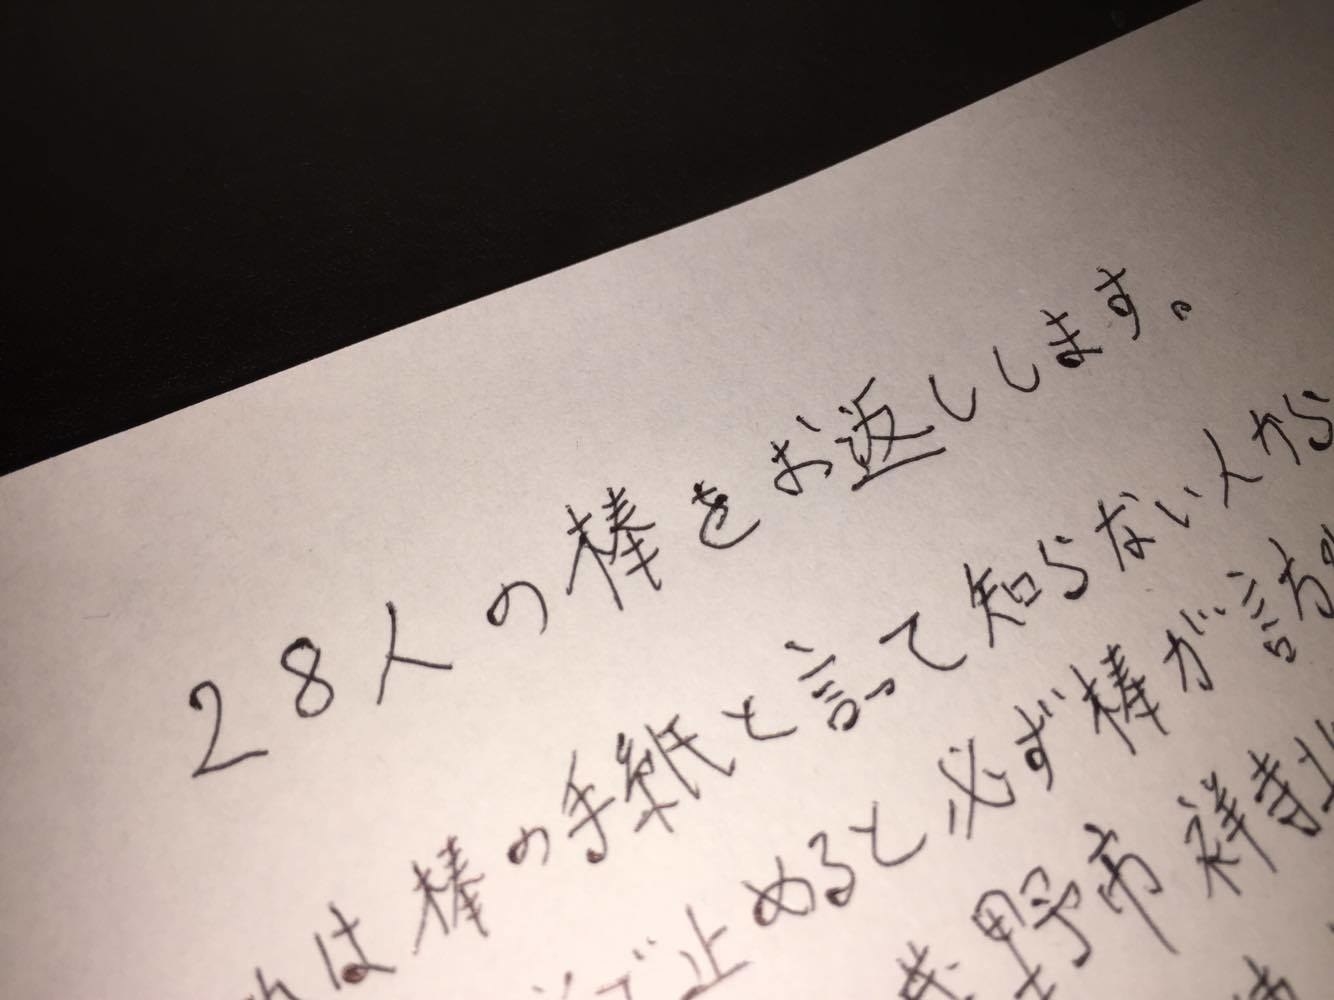 28人の棒をお返しします。
れは棒の手紙と言って知らない人から
で止めると必ず棒が訪
野市 祥寺北